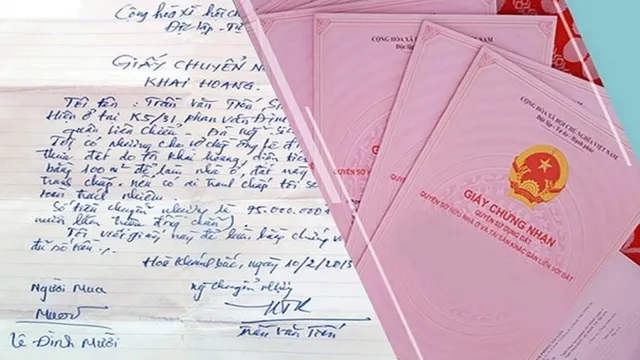 Cộng hòa xã hội ch
Độc lập - Tự
GIẤY CHUYỂN N
KHAI HOANG.
Tôi tên : Trần Văn Tiến S
Hiện ở tại K5/31, phan văn Định
quận Liên Chiểu - Đà
Tôi có nhường cho vợ chồng ông Lê đ
thửa đất do tôi khai hoang, diện tíc
bằng 100 m² để làm nhà ở, đất này
tranh chấp. nếu có ai tranh chấp tôi s
toàn trách nhiệm.
Số tiền chuyển nhường là 95.000.000
mươi lăm triệu đồng chẵn)
Tôi viết giấy này để làm bằng chứng v
đủ số tiền.
Hoà Khánh bắc, ngày 10/2/201
Người Mua
Mười
Lê Đình Mười
ký chuyển nhượng
Trần Văn Tiến
CỘNG HÒA XÃ HỘI CHỦ NGHĨA VIỆT NAM
CỘNG HÒA XÃ HỘI CHỦ NGHĨA VIỆT NAM
Độc lập - Tự do - Hạnh phúc
GIẤY CHỨNG NHẬN
QUYỀN SỬ DỤNG ĐẤT
QUYỀN SỞ HỮU NHÀ Ở VÀ TÀI SẢN KHÁC GẮN LIỀN VỚI ĐẤT